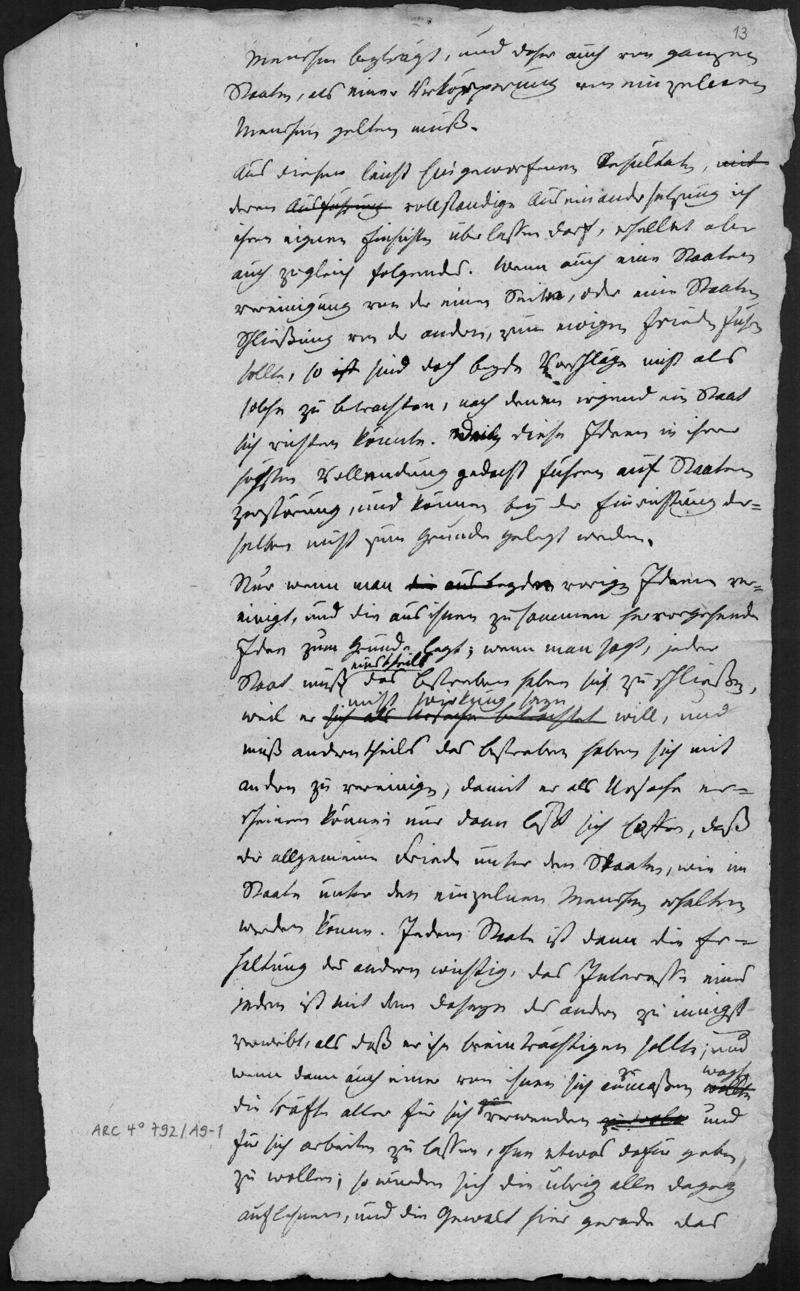 13
Menschen beyträgt, und daher auch von ganzen
Staaten, als einer Verkörperung von einzelnen
Menschen gelten muß.
Aus diesen leicht hingeworfenen Resultaten, mit
deren Ausführung vollständige Auseinandersetzung ich
ihren eignen Einsichten überlassen darf, erhellet aber
auch zugleich folgendes. Wenn auch eine Staaten
vereinigung von der einen Seite, oder eine Staaten
schließung von der andern, zum ewigen Frieden führen
sollte, so ist sind doch beyde Vorschläge nicht als
solche zu betrachten, nach denen irgend ein Staat
sich richten könnte. diese Ideen in ihrer
höchsten Vollendung gedacht führen auf Staaten
zerstörung, und können bey der Einrichtung der=
selben nicht zum Grunde gelegt werden.
Nur wenn man die aus beyden vorige Ideen ver=
einigt, und die aus ihnen zusammen hervorgehende
Idee zum Grunde legt; wenn man sagt, jeder
einstheils
Staat muß das bestreben haben sich zu schließen,
nicht Wirkung seyn
weil er sich als Ursache betrachtet will, und
muß anderntheils das bestreben haben sich mit
andern zu vereinigen, damit er als Ursache er=
scheinen könne; nur dann läßt sich hoffen, daß
der allgemeine Friede unter den Staaten, wie im
Staate unter den einzelnen Menschen erhalten
werden könne. Jedem Staate ist dann die Er=
haltung des andern wichtig, das Interesse eines
jeden ist mit dem daseyn des andern zu innigst
verwebt, als daß er ihn beeinträchtigen sollte; und
wenn dann auch einer von ihnen sich anzumaßen wagte wollte
die Kräfte aller für sich zu verwenden und
ARC 4° 792/A9-1
für sich arbeiten zu lassen, ohne etwas dafür geben
zu wollen; so würden sich die übrigen alle dagegen
auflehnen, und die Gewalt hier gerade das